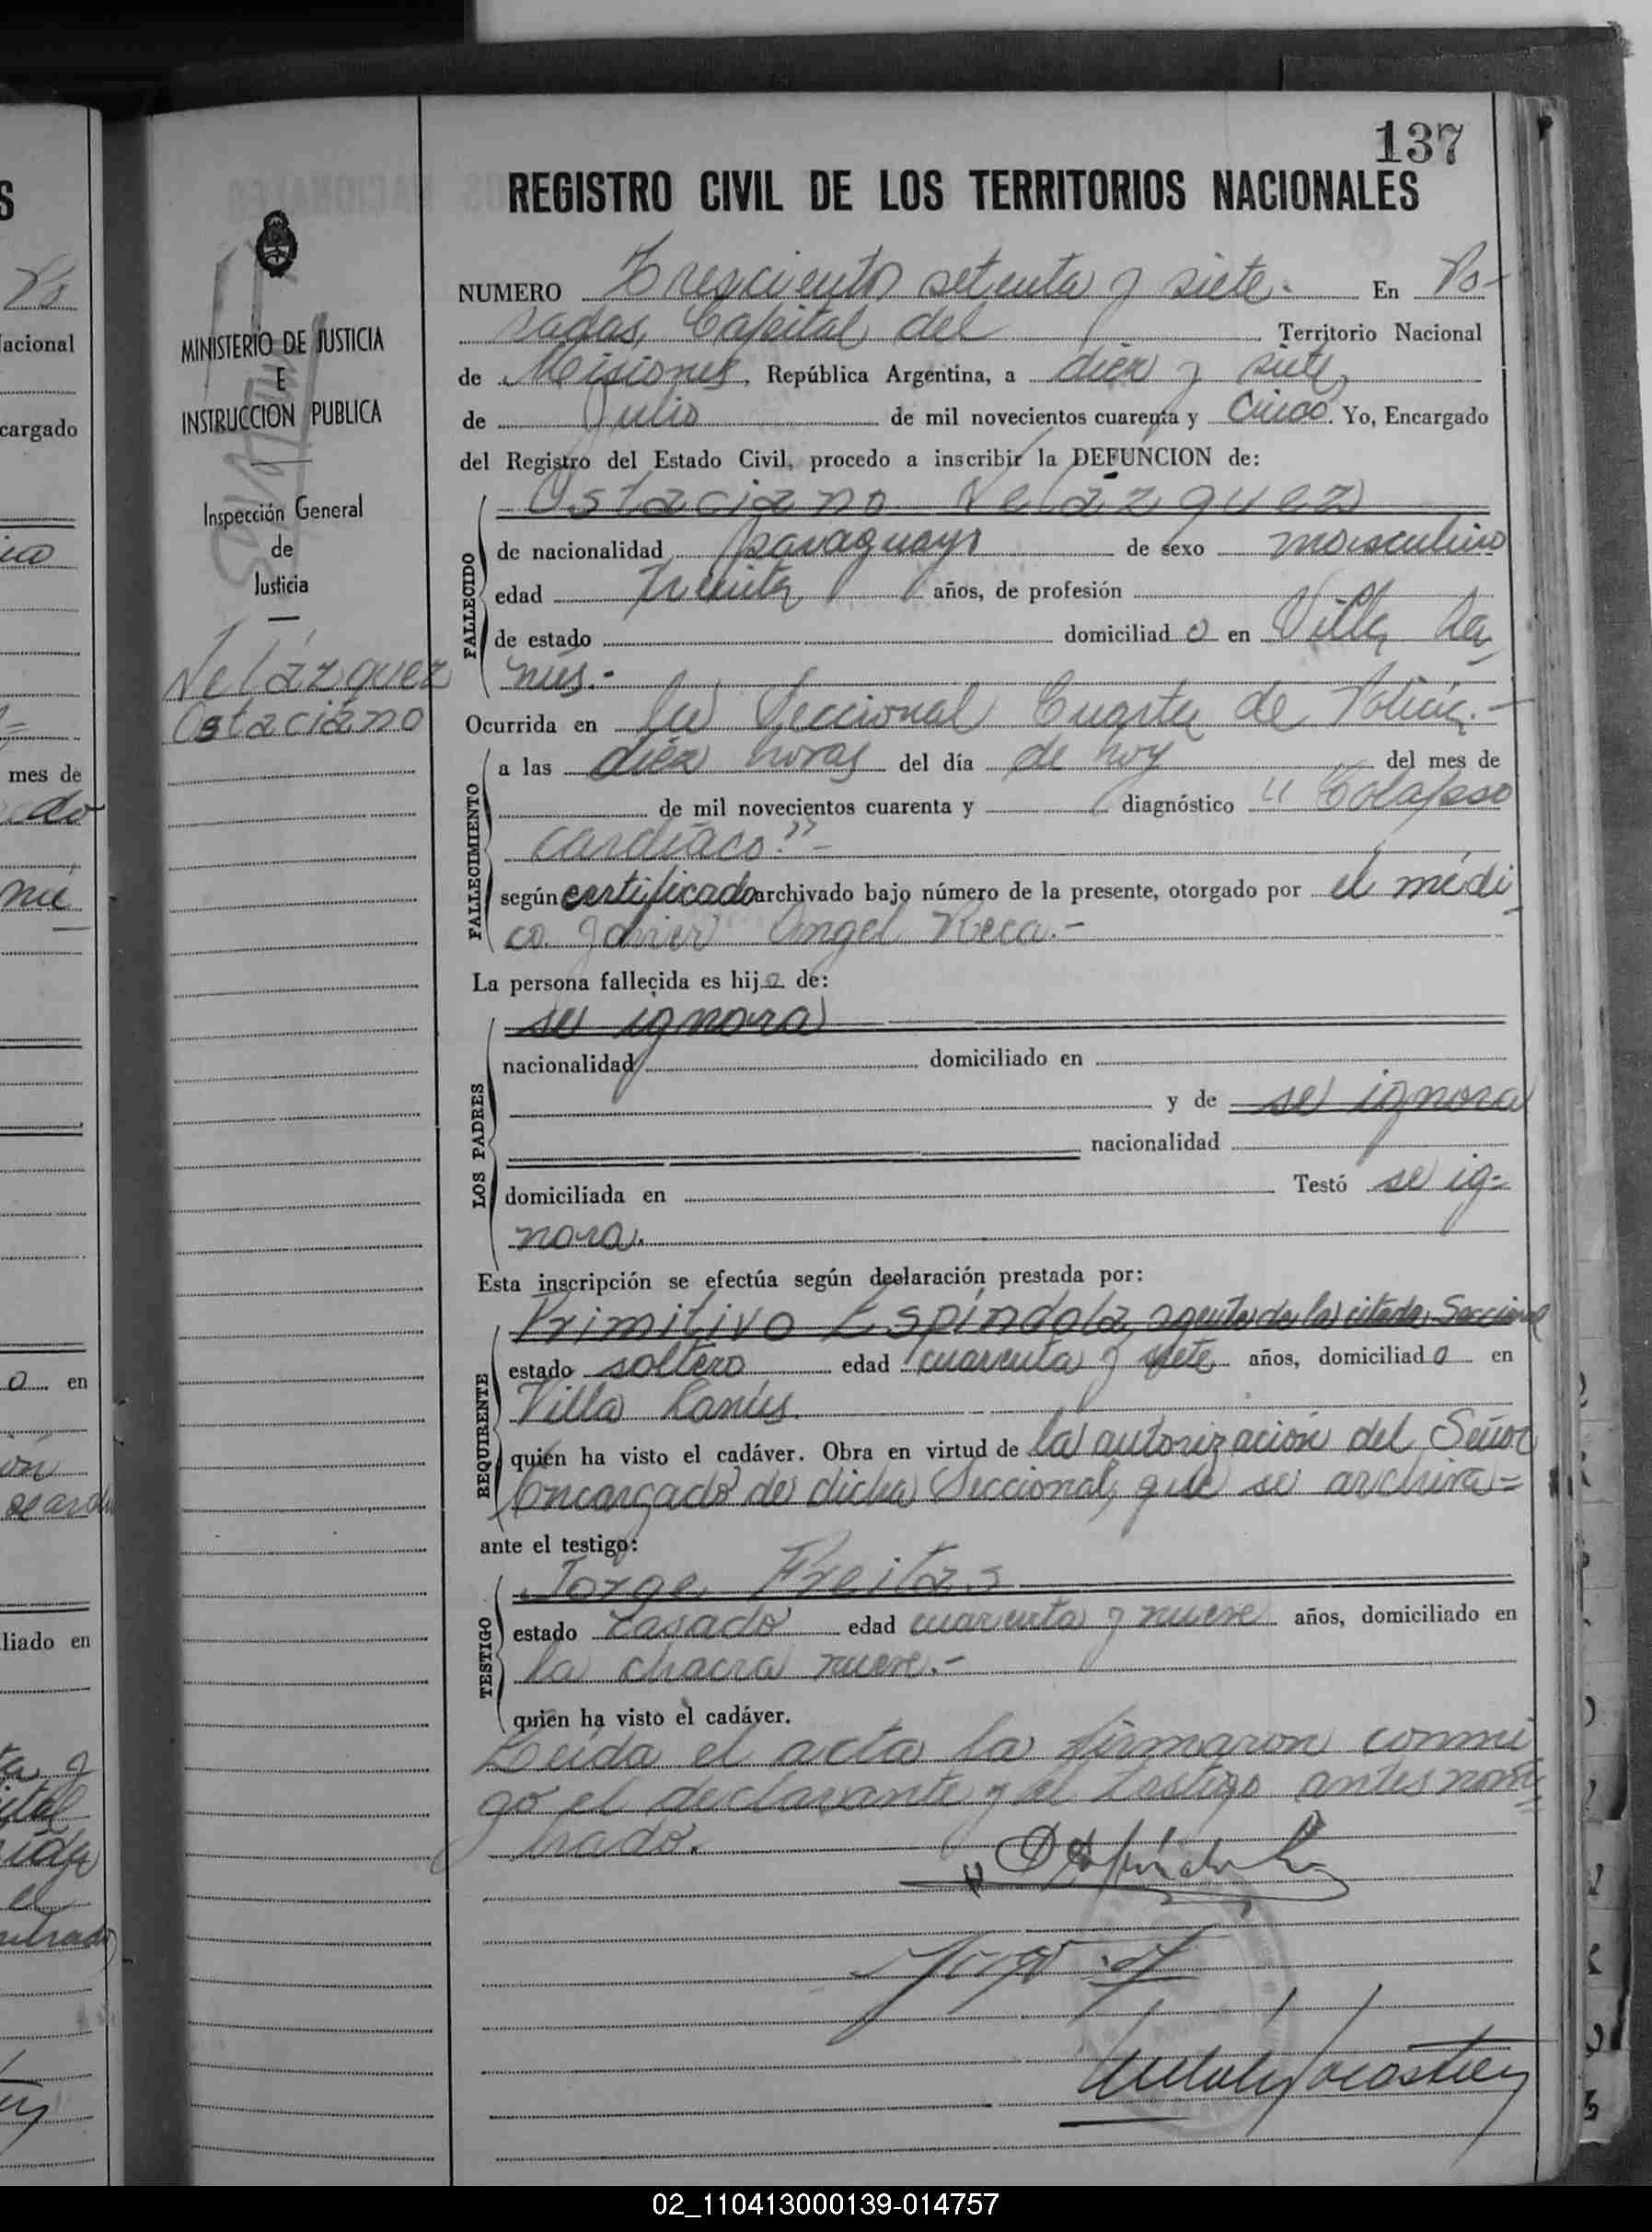 137
REGISTRO CIVIL DE LOS TERRITORIOS NACIONALES
NUMERO Tresciento setenta y siete.- En Po-
sadas, Capital del Territorio Nacional
de Misiones, República Argentina, a diez y siete
de Julio de mil novecientos cuarenta y cinco. Yo, Encargado
del Registro del Estado Civil, procedo a inscribir la DEFUNCION de:
Ostaciano Velázquez
FALLECIDO
de nacionalidad paraguayo de sexo masculino
edad treinta años, de profesión
de estado domiciliado en Villa La-
nús.-
Ocurrida en la Seccional Cuarta de Policía.-
FALLECIMIENTO
a las diez horas del día de hoy del mes de
de mil novecientos cuarenta y diagnóstico "Colapso
cardíaco."-
según certificado archivado bajo número de la presente, otorgado por el médi-
co Javier Angel Reca.-
La persona fallecida es hijo de:
LOS PADRES
se ignora
nacionalidad domiciliado en
y de se ignora
nacionalidad
domiciliada en Testó se ig=
nora.
Esta inscripción se efectúa según declaración prestada por:
REQUIRENTE
Primitivo Espíndola, agente de la citada Seccional
estado soltero edad cuarenta y siete años, domiciliado en
Villa Lanús.
quien ha visto el cadáver. Obra en virtud de la autorización del Señor
Encargado de dicha Seccional, que se archiva=
ante el testigo:
TESTIGO
Jorge Freitas
estado casado edad cuarenta y nueve años, domiciliado en
la chacra nueve.-
quien ha visto el cadáver.
Leída el acta la firmaron conmi
go el declarante y el testigo antes nom=
brado.
MINISTERIO DE JUSTICIA
E
INSTRUCCION PUBLICA
Inspección General
de
Justicia
Velázquez
Ostaciano
02_110413000139-014757